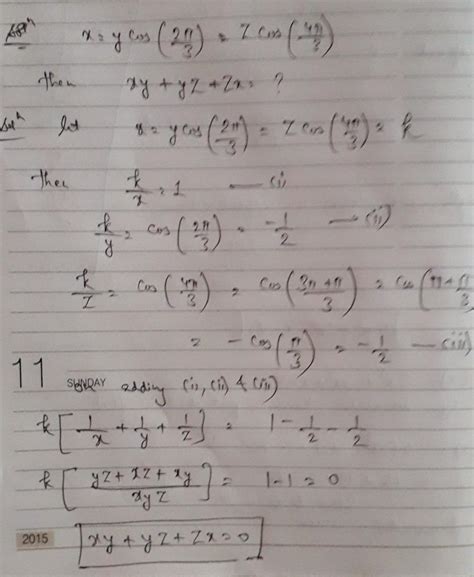 x = y cos (2π/3) = z cos (4π/3)
then xy + yz + zx = ?
Solⁿ let x = y cos (2π/3) = z cos (4π/3) = k
then k/x = 1 — (i)
k/y = cos (2π/3) = -1/2 — (ii)
k/z = cos (4π/3) = cos (3π+π/3) = cos (π+π/3)
= - cos (π/3) = -1/2 — (iii)
11 SUNDAY adding (i), (ii) & (iii)
k [1/x + 1/y + 1/z] = 1 - 1/2 - 1/2
k [yz + xz + xy / xyz] = 1-1 = 0
2015 xy + yz + zx = 0